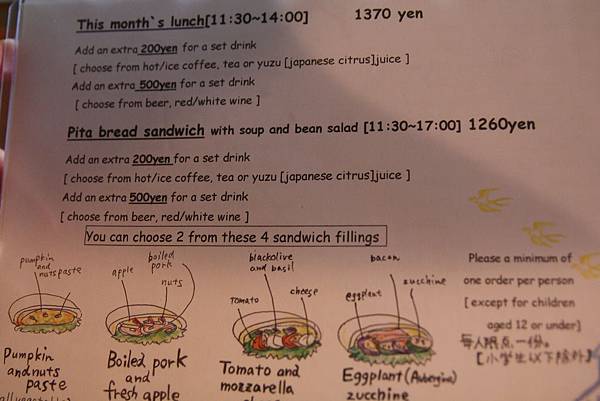 This month`s lunch[11:30~14:00] 1370 yen
Add an extra 200yen for a set drink
[ choose from hot/ice coffee, tea or yuzu [japanese citrus]juice ]
Add an extra 500yen for a set drink
[ choose from beer, red/white wine ]
Pita bread sandwich with soup and bean salad [11:30~17:00] 1260yen
Add an extra 200yen for a set drink
[ choose from hot/ice coffee, tea or yuzu [japanese citrus]juice ]
Add an extra 500yen for a set drink
[ choose from beer, red/white wine ]
You can choose 2 from these 4 sandwich fillings
pumpkin
and
nuts paste
apple
boiled
pork
nuts
Tomato
blackolive
and basil
cheese
eggplant
bacon
zucchine
Pumpkin
and nuts
paste
Boiled pork
and
fresh apple
Tomato and
mozzarella
Eggplant (Aubergine)
zucchine
Please a minimum of
one order per person
[ except for children
aged 12 or under]
每人限点一份。
【小学生以下除外】